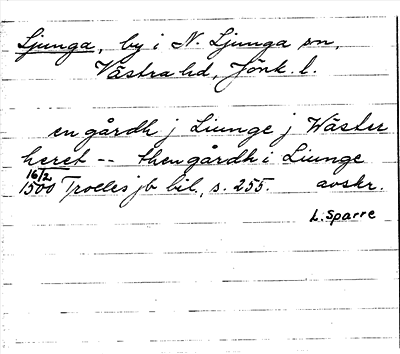 Ljunga, by i N. Ljunga sn,
Västra hd, Jönk. l.
en gårdh j Liunge j Wäster
heret -- then gårdh i Liunge
16/2 1500 Troelles jb bil., s. 255. avskr.
L. Sparre